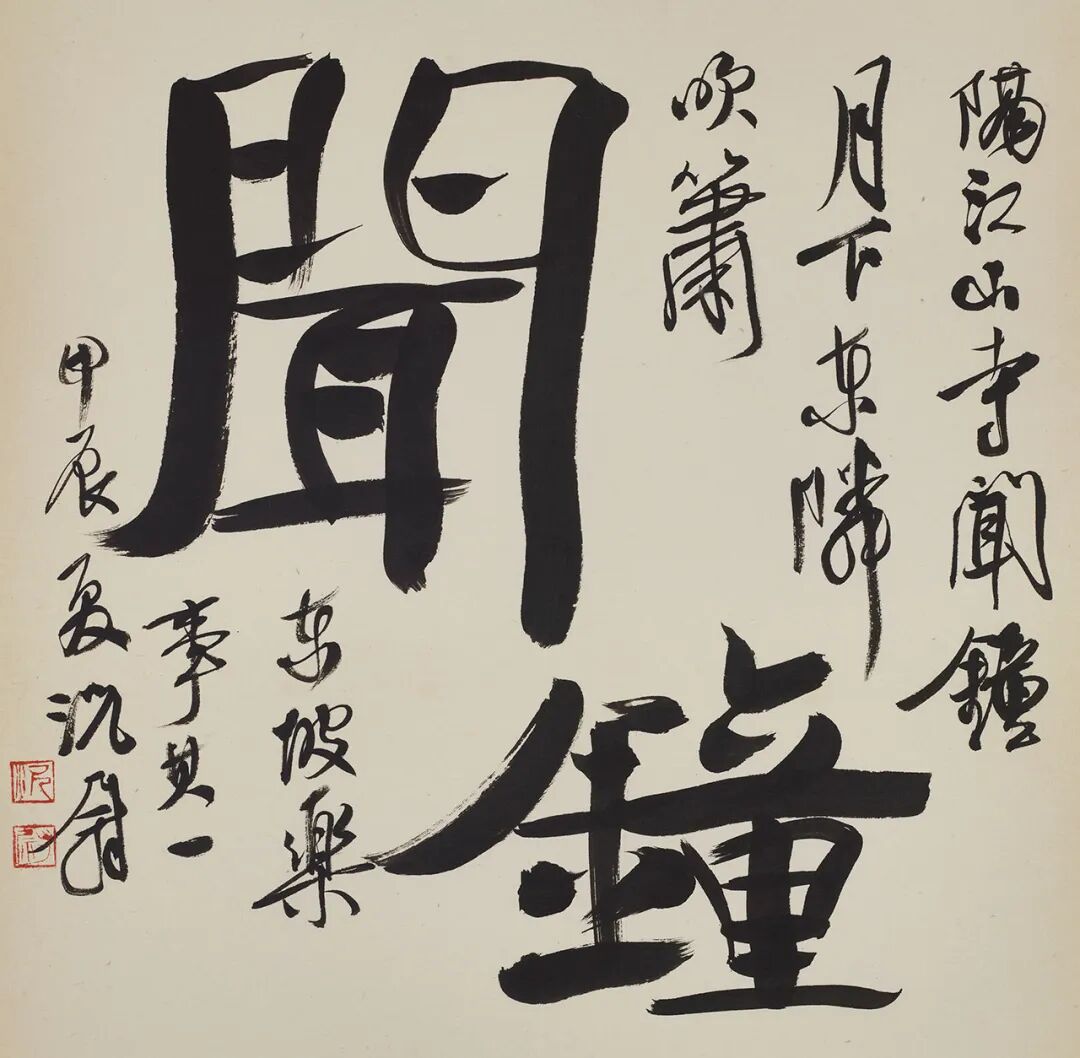 隔江山寺聞鐘
月下東隣
吹簫
聞鐘
東坡樂
事其一
甲辰夏翁